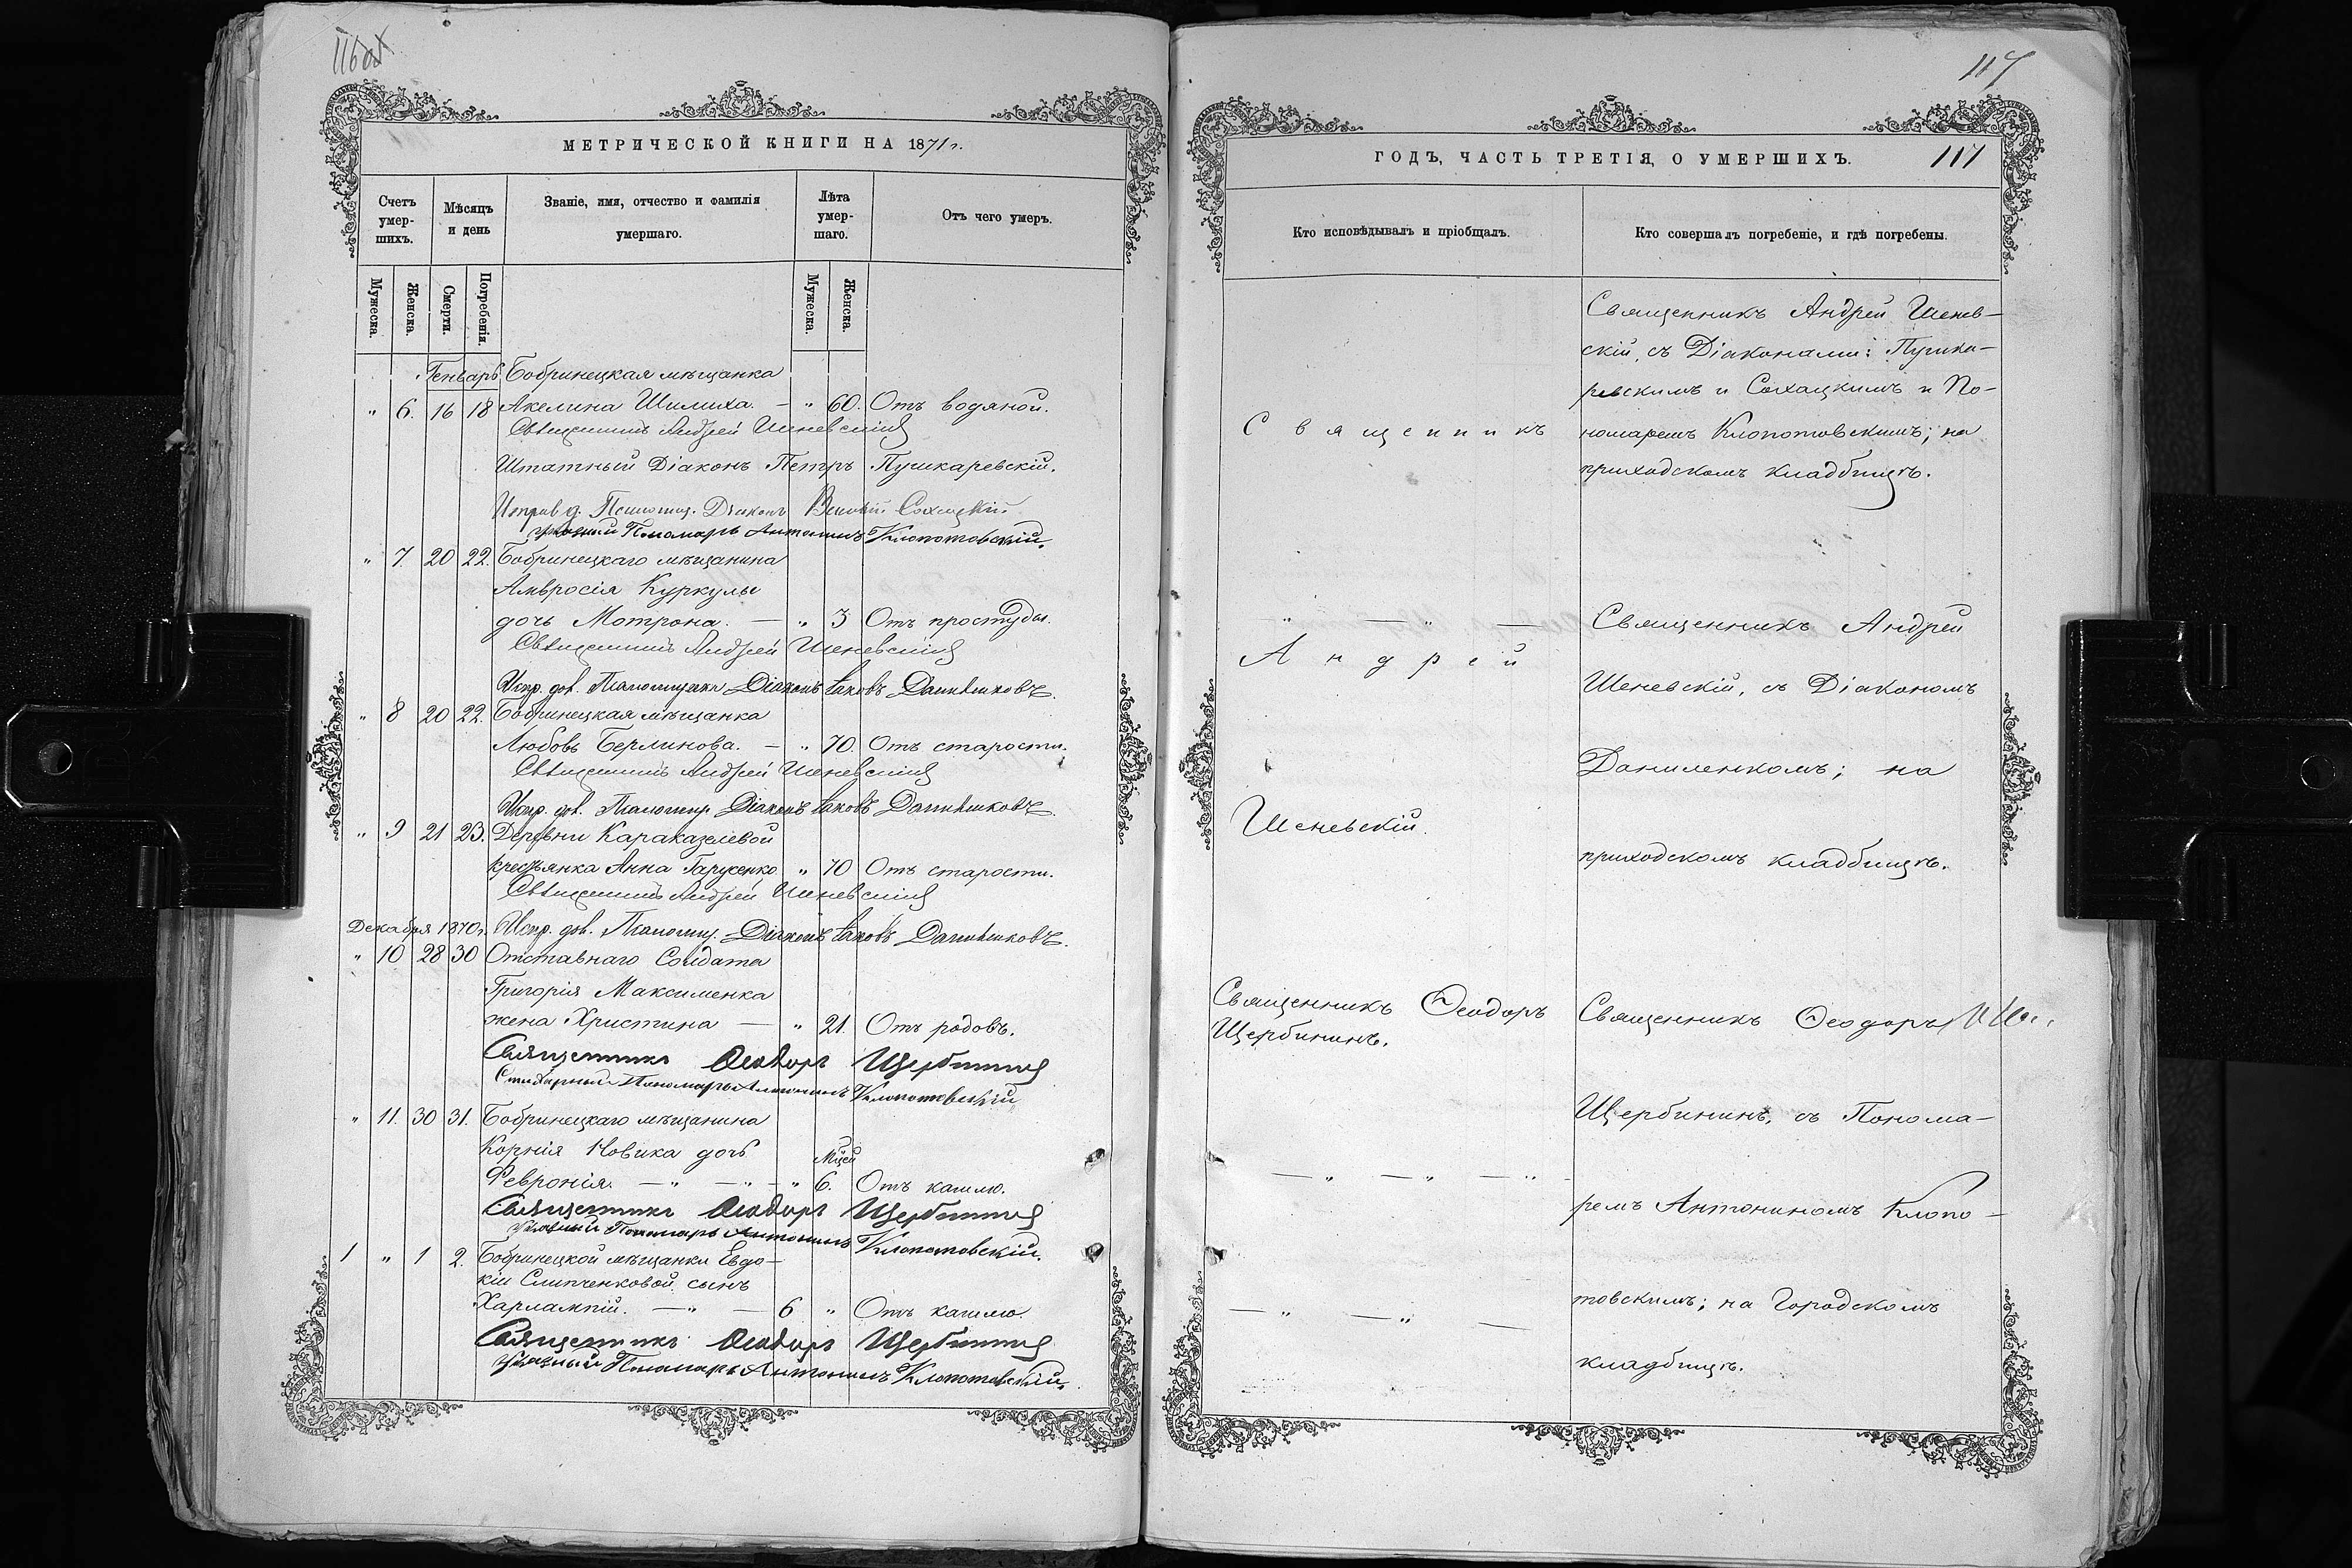 116 об
МЕТРИЧЕСКОЙ КНИГИ НА 1871 г.
Счетъ умер-шихъ.
Мѣсяцъ и день
Званіе, имя, отчество и фамилія умершаго.
Лѣта умер-шаго.
Отъ чего умеръ.
Мужеска.
Женска.
Смерти.
Погребенія.
Мужеска.
Женска.
Генварь Бобринецкая мѣщанка
" 6. 16 18 Акелина Шилиха. — " 60. Отъ водяной.
Священникъ Андрей Шеневскій
Штатный Діаконъ Петръ Пушкаревскій.
Исправ. д. Псаломщ. Діаконъ Сохацкій
Пономарь Антонинъ Клопотовскій.
" 7 20 22. Бобринецкаго мѣщанина
Амвросія Куркулы
дочь Мотрона. — " 3 Отъ простуды.
Священникъ Андрей Шеневскій
Испр. дол. Псаломщика Діаконъ Іаковъ
" 8 20 22. Бобринецкая мѣщанка
Любовь Берлинова. — " 70. Отъ старости.
Священникъ Андрей Шеневскій
Испр. дол. Псаломщ. Діаконъ Іаковъ
" 9 21 23. Деревни Караказелевой
крестьянка Анна Гарусенко " 70 Отъ старости.
Священникъ Андрей Шеневскій
Декабря 1870 г. Испр. дол. Псаломщ. Діаконъ Іаковъ
" 10 28 30 Отставнаго Солдата
Григорія Максименка
жена Христина — " 21. Отъ родовъ.
Священникъ Ѳеодоръ Щербининъ
Стихарный Пономарь Антонинъ Клопотовскій
" 11. 30 31. Бобринецкаго мѣщанина
Корнія Новика дочь Мцей
Февронія. — " — " — " 6. Отъ кашлю.
Священникъ Ѳеодоръ Щербининъ
Пономарь Антонинъ Клопотовскій.
1 " 1 2. Бобринецкой мѣщанки Евдо-
кіи Слипченковой сынъ
Харлампій. — " — 6 " Отъ кашлю.
Священникъ Ѳеодоръ Щербининъ
Пономарь Антонинъ Клопотовскій.
117
ГОДЪ, ЧАСТЬ ТРЕТІЯ, О УМЕРШИХЪ. 117
Кто исповѣдывалъ и пріобщалъ.
Кто совершалъ погребеніе, и гдѣ погребены.
Священникъ
" — " —
Андрей
Шеневскій.
Священникъ Ѳеодоръ
Щербининъ.
— " — " — "
— " — " —
Священникъ Андрей Шенев-
скій, съ Діаконами: Пушка-
ревскимъ и Сохацкимъ и По-
номаремъ Клопотовскимъ; на
приходскомъ кладбищѣ.
Священникъ Андрей
Шеневскій, съ Діакономъ
Даниленкомъ; на
приходскомъ кладбищѣ.
Священникъ Ѳеодоръ
Щербининъ, съ Понома-
ремъ Антониномъ Клопо-
товскимъ; на Городскомъ
кладбищѣ.